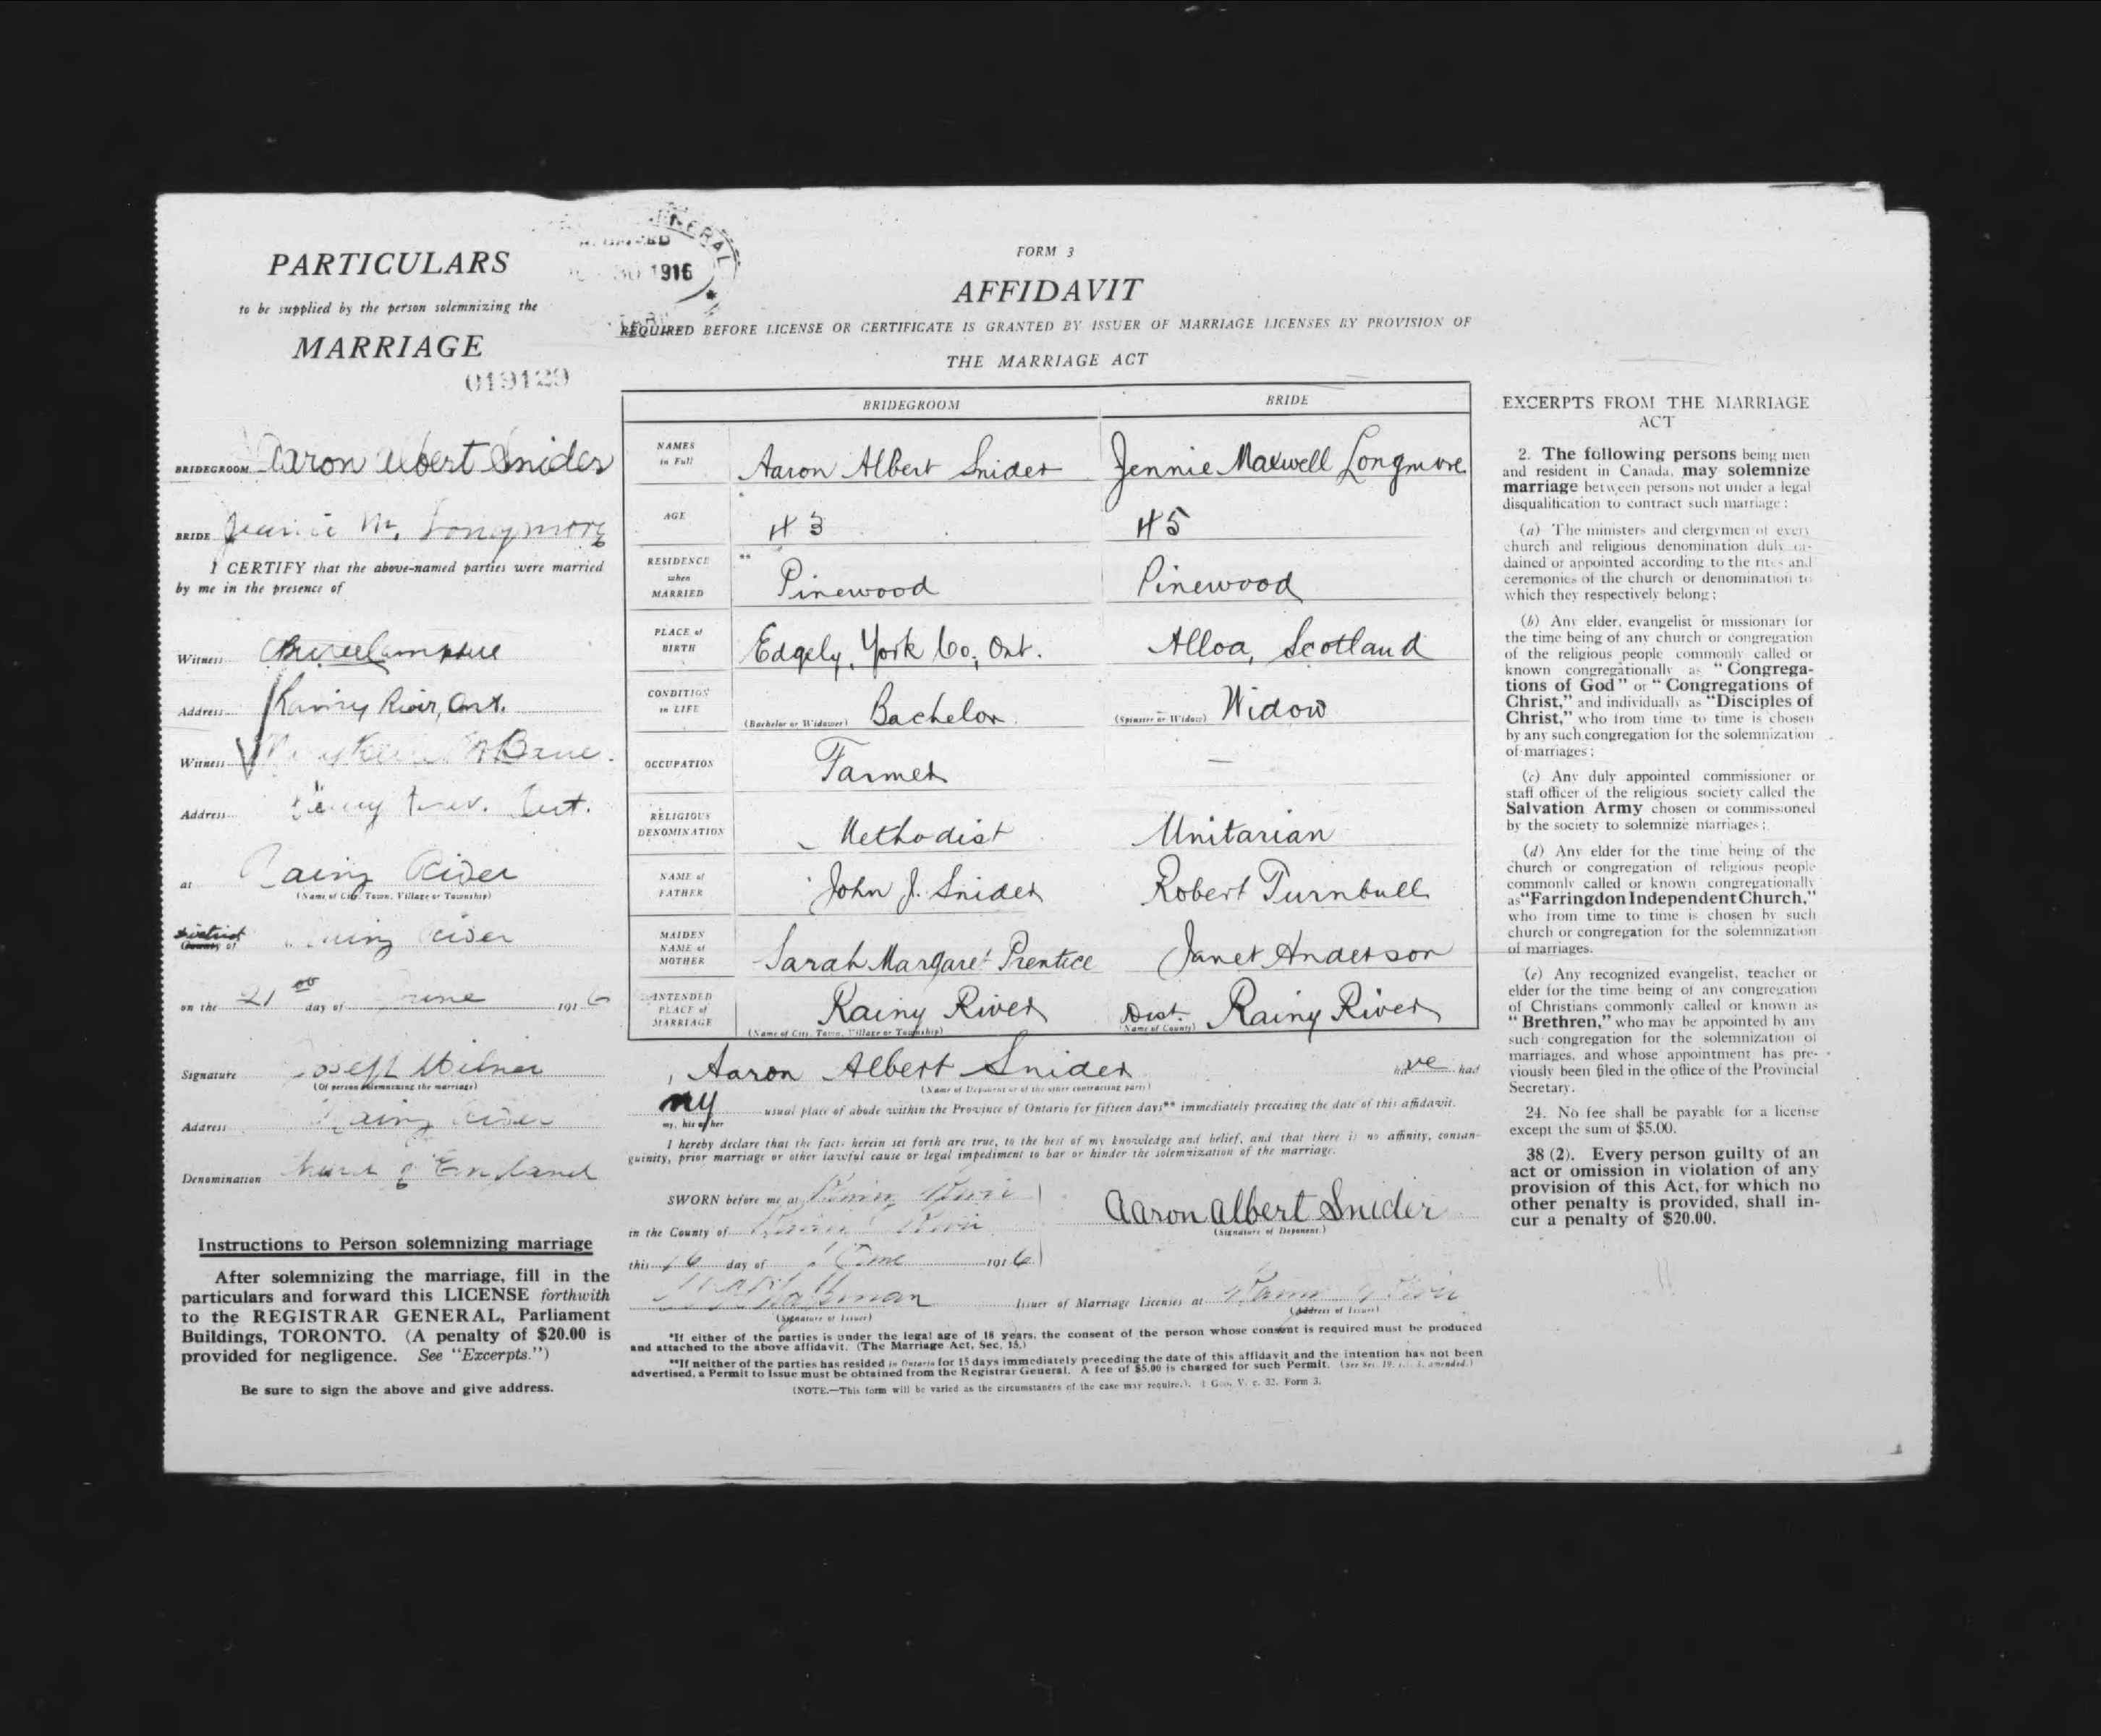 PARTICULARS
to be supplied by the person solemnizing the
MARRIAGE
019129
BRIDEGROOM Aaron Albert Snider
BRIDE Jennie M. Longmore
I CERTIFY that the above-named parties were married
by me in the presence of
Witness
Address Rainy River, Ont.
Witness McBane.
Address Rainy River. Ont.
at Rainy River
(Name of City, Town, Village or Township)
District
County of Rainy River
on the 21st day of June 1916
Signature Joseph Milner
(Of person solemnizing the marriage)
Address Rainy River
Denomination Church of England
Instructions to Person solemnizing marriage
After solemnizing the marriage, fill in the
particulars and forward this LICENSE forthwith
to the REGISTRAR GENERAL, Parliament
Buildings, TORONTO. (A penalty of $20.00 is
provided for negligence. See "Excerpts.")
Be sure to sign the above and give address.
GENERAL
30 1916
FORM 3
AFFIDAVIT
REQUIRED BEFORE LICENSE OR CERTIFICATE IS GRANTED BY ISSUER OF MARRIAGE LICENSES BY PROVISION OF
THE MARRIAGE ACT
BRIDEGROOM BRIDE
NAMES in Full Aaron Albert Snider Jennie Maxwell Longmore
AGE * 43 45
RESIDENCE when MARRIED ** Pinewood Pinewood
PLACE of BIRTH Edgely, York Co; Ont. Alloa, Scotland
CONDITION in LIFE (Bachelor or Widower) Bachelor (Spinster or Widow) Widow
OCCUPATION Farmer —
RELIGIOUS DENOMINATION Methodist Unitarian
NAME of FATHER John J. Snider Robert Turnbull
MAIDEN NAME of MOTHER Sarah Margaret Prentice Janet Anderson
INTENDED PLACE of MARRIAGE Rainy River Dist. Rainy River
(Name of City, Town, Village or Township) (Name of County)
I, Aaron Albert Snider have had
(Name of Deponent or of the other contracting party)
my usual place of abode within the Province of Ontario for fifteen days** immediately preceding the date of this affidavit.
my, his or her
I hereby declare that the facts herein set forth are true, to the best of my knowledge and belief, and that there is no affinity, consan-
guinity, prior marriage or other lawful cause or legal impediment to bar or hinder the solemnization of the marriage.
SWORN before me at Rainy River
in the County of Rainy River
this 16 day of June 1916
Aaron Albert Snider
(Signature of Deponent.)
Issuer of Marriage Licenses at Rainy River
(Signature of Issuer) (Address of Issuer)
*If either of the parties is under the legal age of 18 years, the consent of the person whose consent is required must be produced
and attached to the above affidavit. (The Marriage Act, Sec. 15.)
**If neither of the parties has resided in Ontario for 15 days immediately preceding the date of this affidavit and the intention has not been
advertised, a Permit to Issue must be obtained from the Registrar General. A fee of $5.00 is charged for such Permit. (See Sec. 19, amended.)
(NOTE.—This form will be varied as the circumstances of the case may require.). 1 Geo. V. c. 32. Form 3.
EXCERPTS FROM THE MARRIAGE
ACT
2. The following persons being men
and resident in Canada, may solemnize
marriage between persons not under a legal
disqualification to contract such marriage:
(a) The ministers and clergymen of every
church and religious denomination duly or-
dained or appointed according to the rites and
ceremonies of the church or denomination to
which they respectively belong;
(b) Any elder, evangelist or missionary for
the time being of any church or congregation
of the religious people commonly called or
known congregationally as "Congrega-
tions of God" or "Congregations of
Christ," and individually as "Disciples of
Christ," who from time to time is chosen
by any such congregation for the solemnization
of marriages;
(c) Any duly appointed commissioner or
staff officer of the religious society called the
Salvation Army chosen or commissioned
by the society to solemnize marriages;
(d) Any elder for the time being of the
church or congregation of religious people
commonly called or known congregationally
as "Farringdon Independent Church,"
who from time to time is chosen by such
church or congregation for the solemnization
of marriages.
(e) Any recognized evangelist, teacher or
elder for the time being of any congregation
of Christians commonly called or known as
"Brethren," who may be appointed by any
such congregation for the solemnization of
marriages, and whose appointment has pre-
viously been filed in the office of the Provincial
Secretary.
24. No fee shall be payable for a license
except the sum of $5.00.
38 (2). Every person guilty of an
act or omission in violation of any
provision of this Act, for which no
other penalty is provided, shall in-
cur a penalty of $20.00.